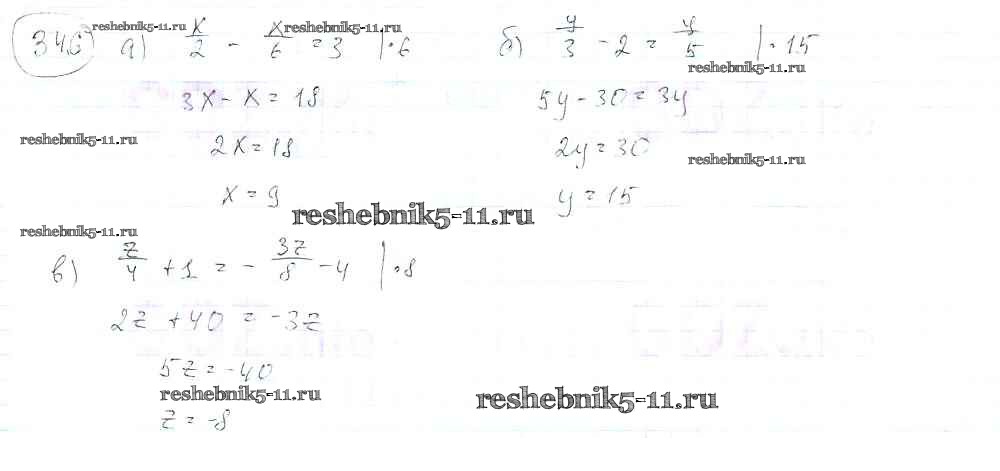 346 а) x/2 - x/6 = 3 | · 6
3x - x = 18
2x = 18
x = 9
б) y/3 - 2 = y/5 | · 15
5y - 30 = 3y
2y = 30
y = 15
в) z/4 + 1 = - 3z/8 - 4 | · 8
2z + 40 = -3z
5z = -40
z = -8
reshebnik5-11.ru
reshebnik5-11.ru
reshebnik5-11.ru
reshebnik5-11.ru
reshebnik5-11.ru
reshebnik5-11.ru
reshebnik5-11.ru
reshebnik5-11.ru
reshebnik5-11.ru